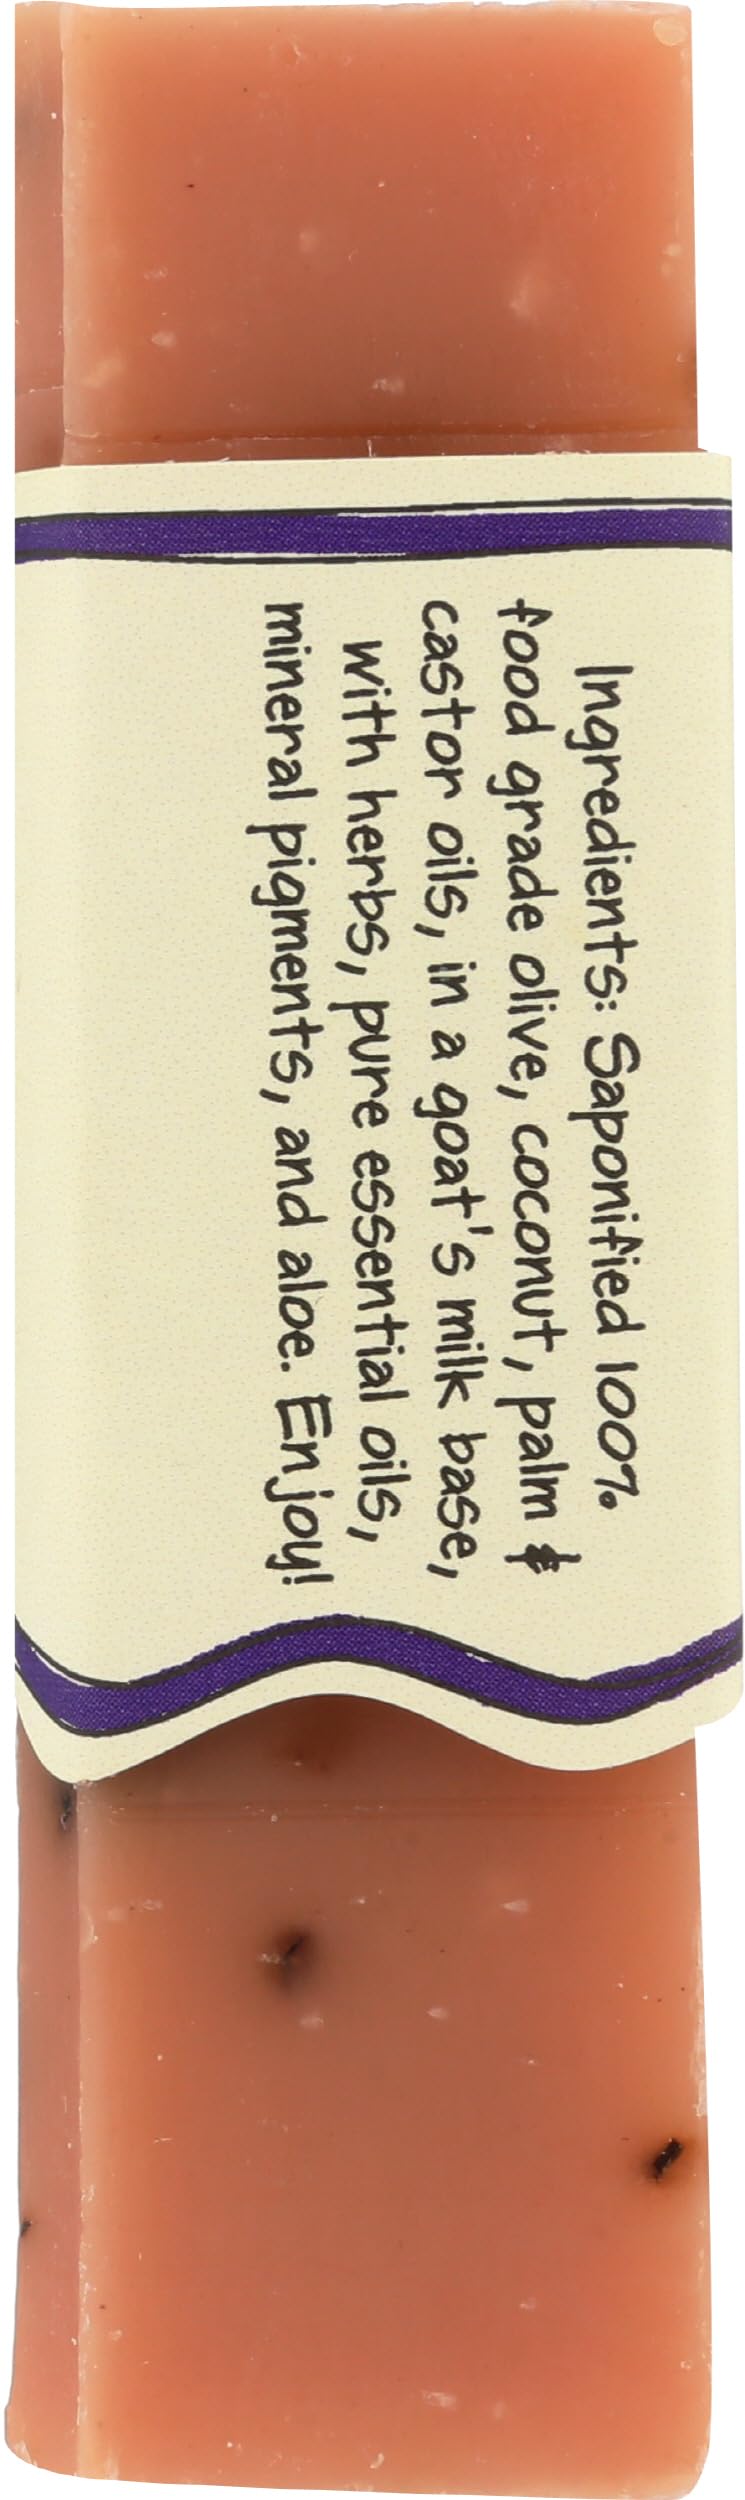 Ingredients: Saponified 100%
food grade olive, coconut, palm &
castor oils, in a goat's milk base,
with herbs, pure essential oils,
mineral pigments, and aloe. Enjoy!